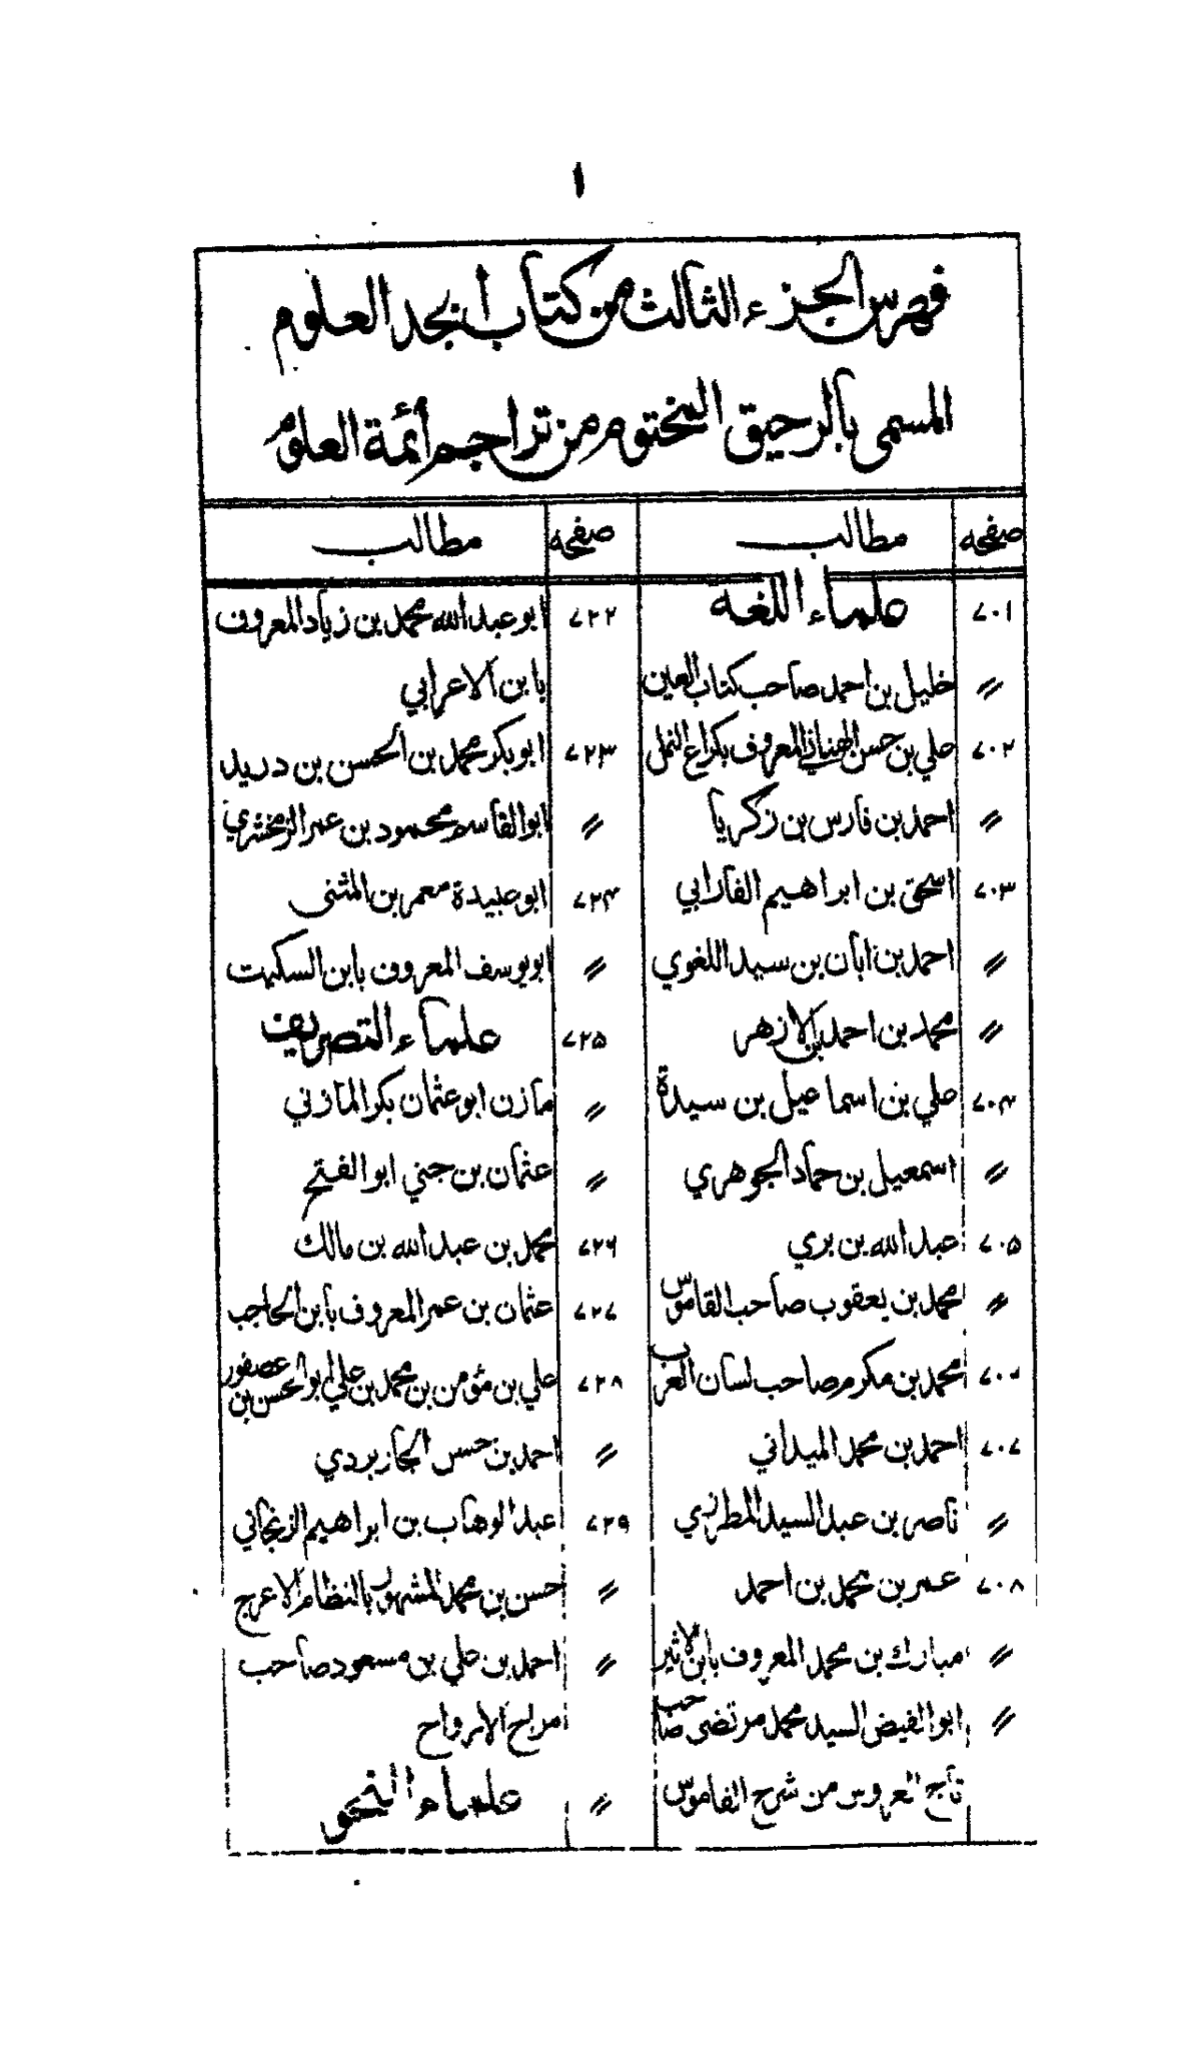 ١
فهرس الجزء الثالث من كتاب ابجد العلوم
المسمى بالرحيق المختوم من تراجم أئمة العلوم
صفحه مطالب
٧٠١ علماء اللغه
〃 خليل بن احمد صاحب كتاب العين
٧٠٢ علي بن حسن الهنائي المعروف بكراع النمل
〃 احمد بن فارس بن زكريا
٧٠٣ اسحق بن ابراهيم الفارابي
〃 احمد بن ابان بن سيد اللغوي
〃 محمد بن احمد بن الازهر
٧٠۴ علي بن اسماعيل بن سيدة
〃 اسمعيل بن حماد الجوهري
٧٠۵ عبد الله بن بري
〃 محمد بن يعقوب صاحب القاموس
٧٠٦ محمد بن مكرم صاحب لسان العرب
٧٠٧ احمد بن محمد الميداني
〃 ناصر بن عبد السيد المطرزي
٧٠٨ عمر بن محمد بن احمد
〃 مبارك بن محمد المعروف بابن الاثير
〃 ابو الفيض السيد محمد مرتضى صاحب
تاج العروس من شرح القاموس
صفحه مطالب
٧٢٢ ابو عبد الله محمد بن زياد المعروف
بابن الاعرابي
٧٢٣ ابو بكر محمد بن الحسن بن دريد
〃 ابو القاسم محمود بن عمر الزمخشري
٧٢۴ ابو عبيدة معمر بن المثنى
〃 ابو يوسف المعروف بابن السكيت
٧٢۵ علماء التصريف
〃 مازن ابو عثمان بكر المازني
〃 عثمان بن جني ابو الفتح
٧٢٦ محمد بن عبد الله بن مالك
٧٢٧ عثمان بن عمر المعروف بابن الحاجب
٧٢٨ علي بن مؤمن بن محمد بن علي ابو الحسن بن عصفور
〃 احمد بن حسن الجاربردي
٧٢٩ عبد الوهاب بن ابراهيم الزنجاني
〃 حسن بن محمد المشهور بالنظام الاعرج
〃 احمد بن علي بن مسعود صاحب
مراح الارواح
〃 علماء النحو